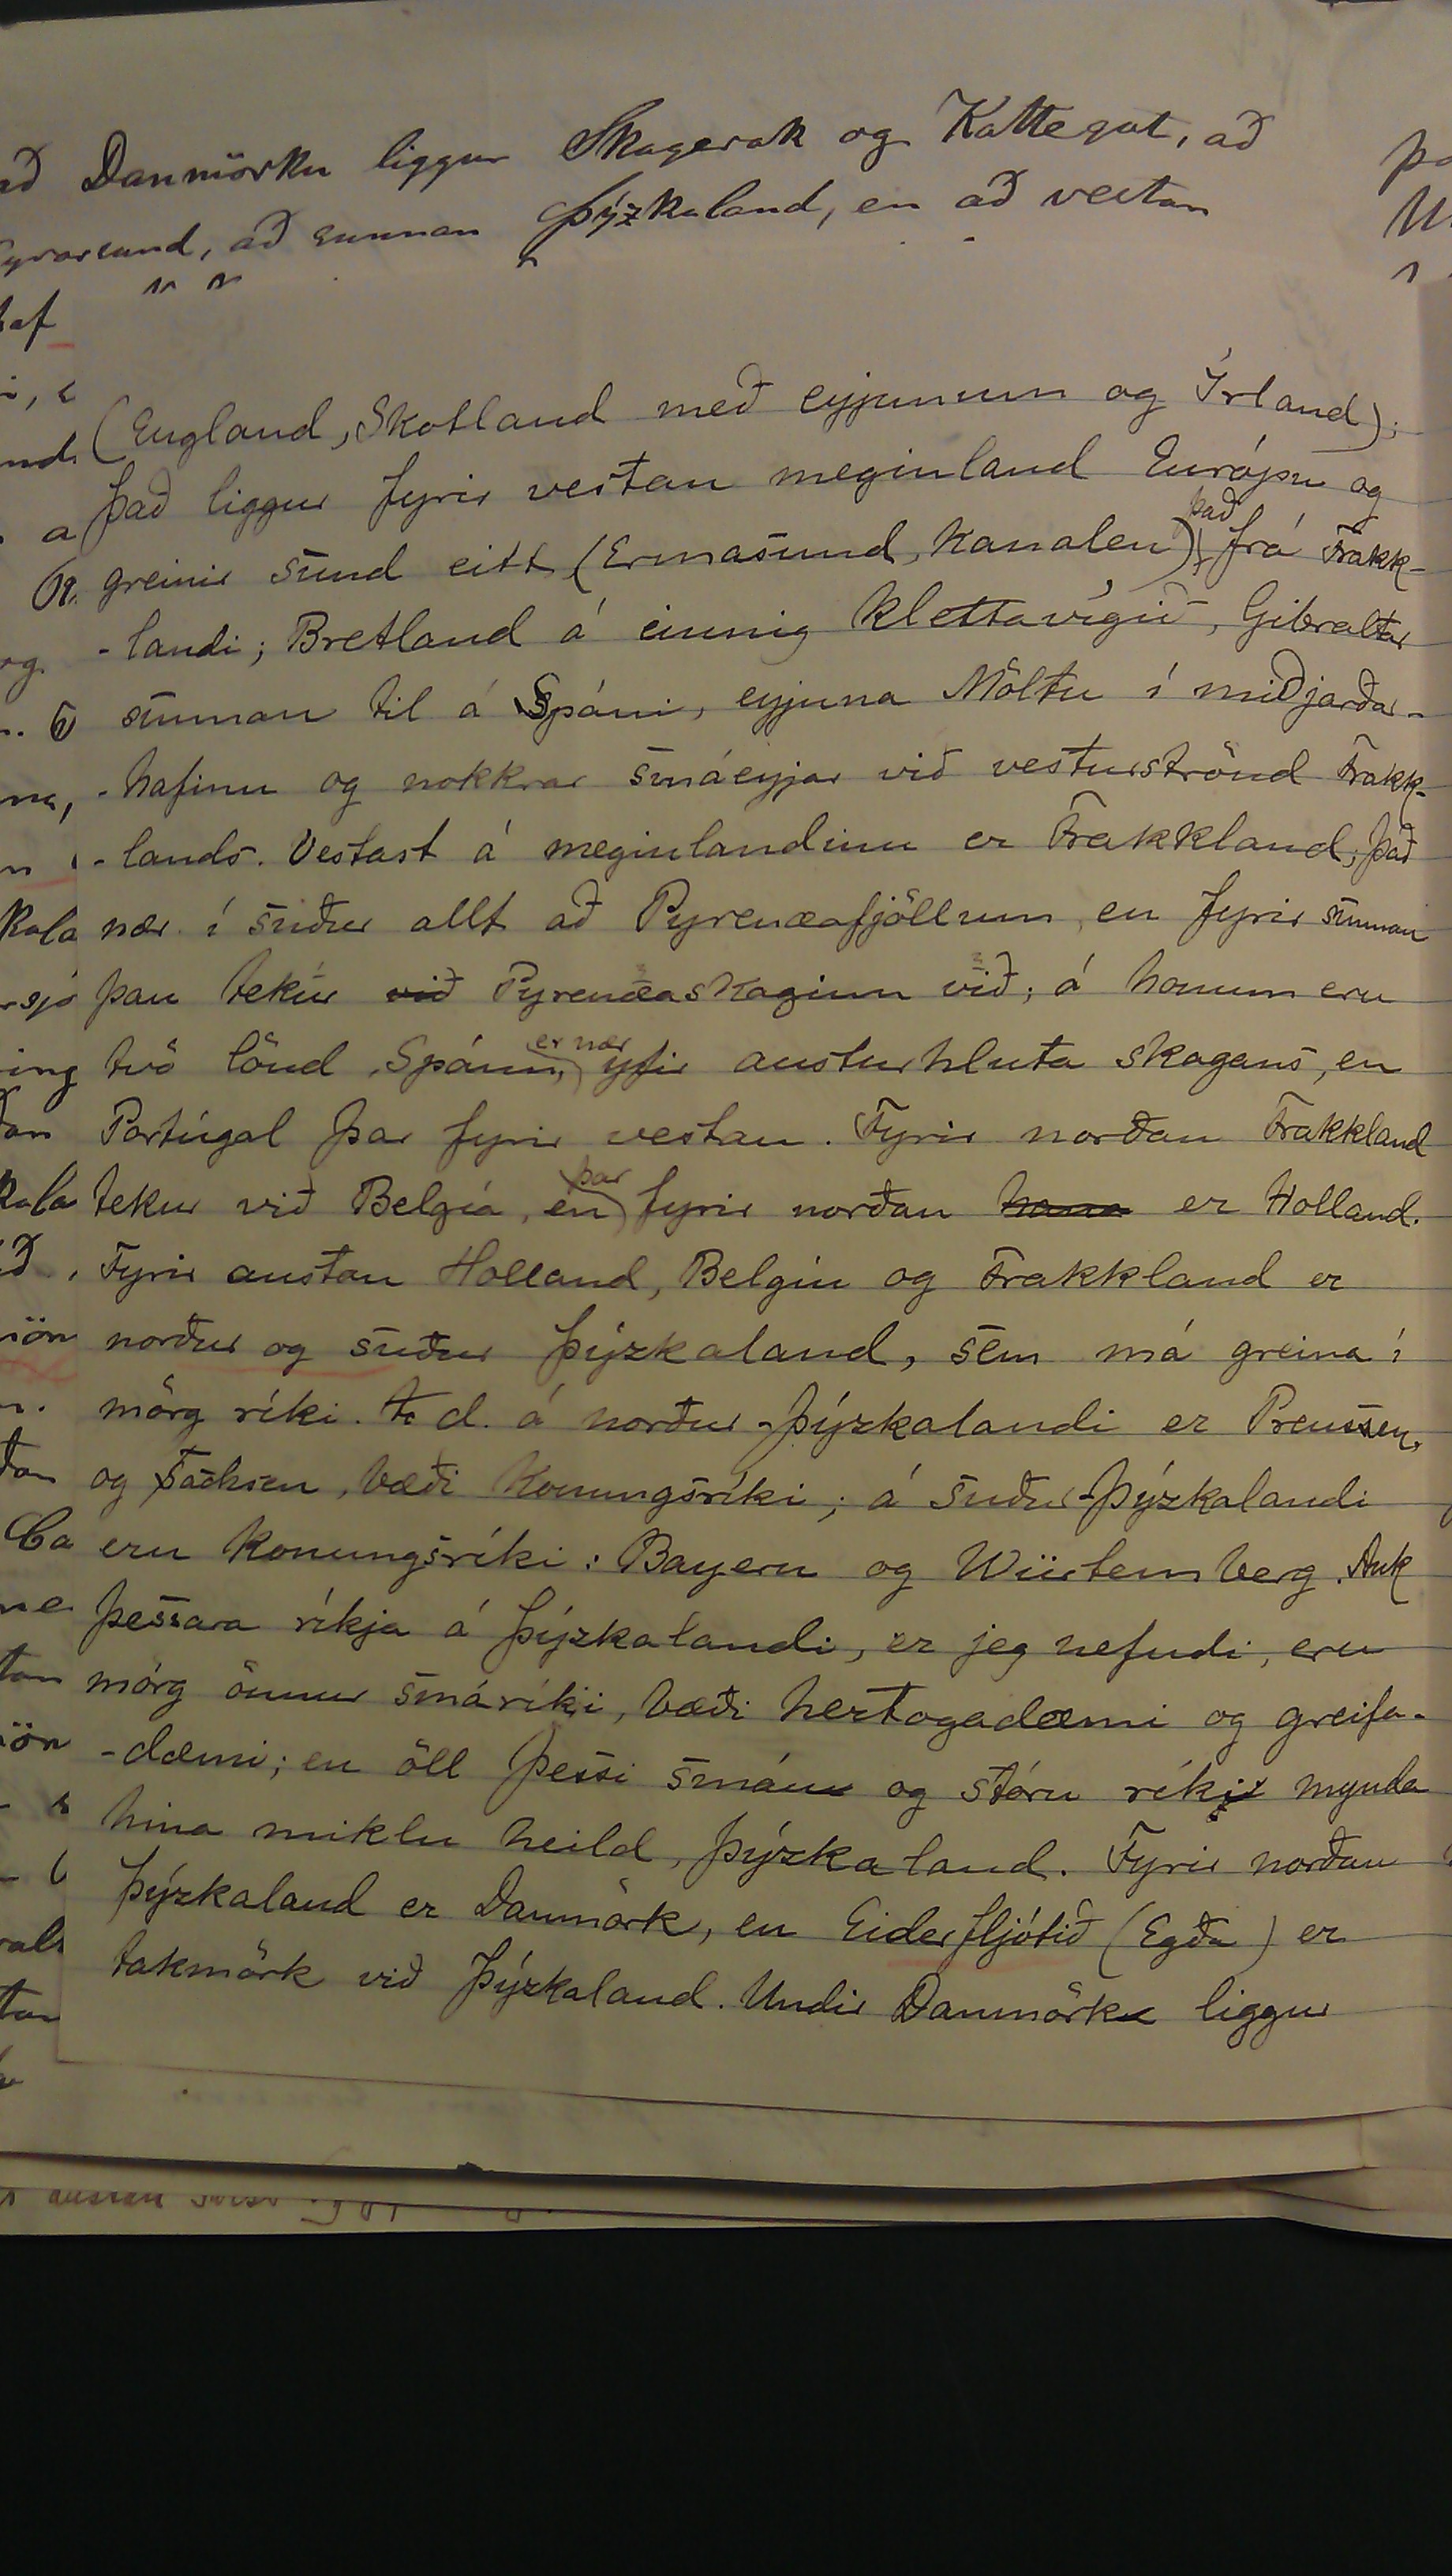 að Danmörku liggur Skagerak og Kattegat, að
Eyrarsund, að sunnan Þýzkaland, en að vestan
(England, Skotland með eyjunum og Írland);
það liggur fyrir vestan meginland Európu og
greinir sund eitt (Ermasund, Kanalen) það frá Frakk-
-landi; Bretland á einnig klettavígið, Gibraltar
sunnan til á Spáni, eyjuna Möltu í miðjarðar-
-hafinu og nokkrar smáeyjar við vesturströnd Frakk-
-lands. Vestast á meginlandinu er Frakkland; það
nær í suður allt að Pyrenæafjöllum, en fyrir sunnan
þau tekur við Pyrenæaskaginn við; á honum eru
tvö lönd, Spánn, er nær yfir austurhluta skagans, en
Portúgal þar fyrir vestan. Fyrir norðan Frakkland
tekur við Belgía, en þar fyrir norðan hana er Holland.
Fyrir austan Holland, Belgíu og Frakkland er
norður og suður Þýzkaland, sem má greina í
mörg ríki. t. d. á norður-Þýzkalandi er Preussen,
og Sachsen, bæði konungsríki; á suður-Þýzkalandi
eru konungsríki: Bayern og Würtemberg. Auk
þessara ríkja á Þýzkalandi, er jeg nefndi, eru
mörg önnur smáríki, bæði hertogadæmi og greifa-
-dæmi; en öll þessi smáu og stóru ríki mynda
hina miklu heild, Þýzkaland. Fyrir norðan
Þýzkaland er Danmörk, en Eiderfljótið (Egða) er
takmörk við Þýzkaland. Undir Danmörku liggur